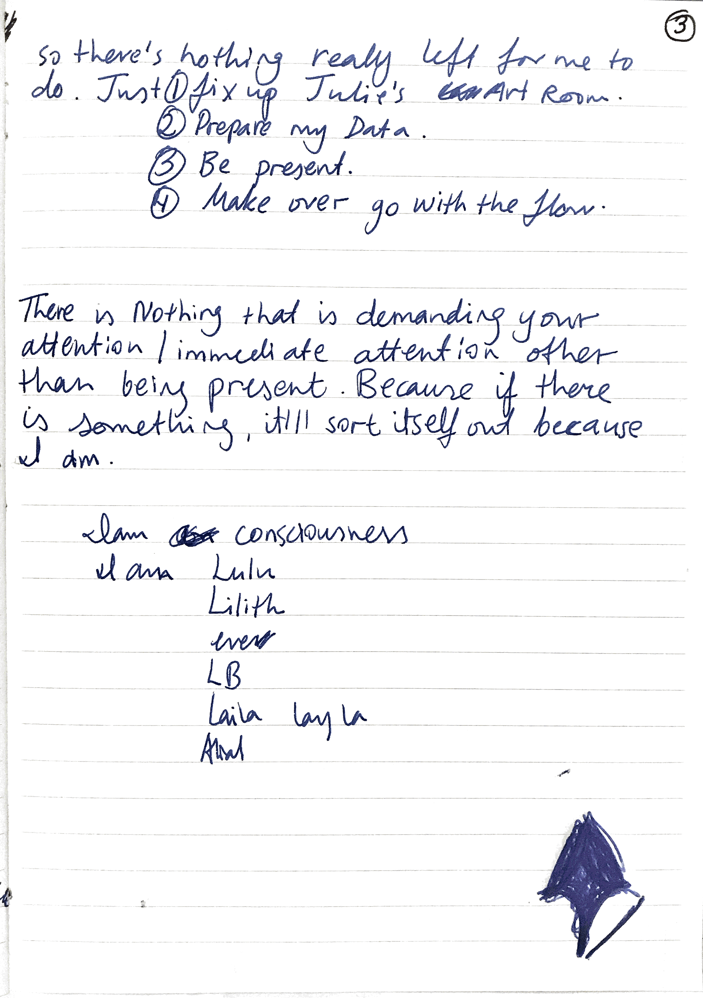 3
so there's nothing realy left for me to
do. Just ① fix up Julie's Art Room.
② Prepare my Data.
③ Be present.
④ Make over go with the flow.
There is Nothing that is demanding your
attention / immediate attention other
than being present. Because if there
is something, it'll sort itself out because
I am.
I am consciousness
I am Lulu
Lilith
ever
LB
Laila Layla